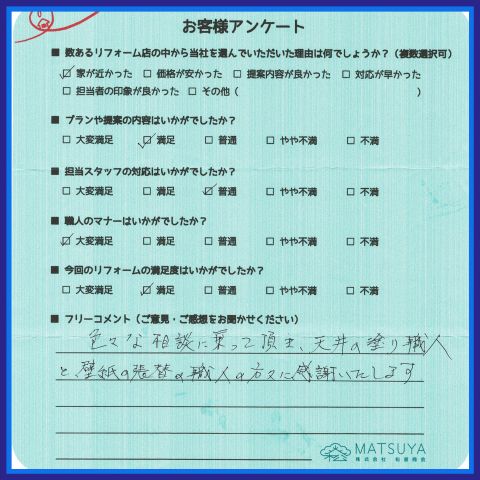 お客様アンケート
■ 数あるリフォーム店の中から当社を選んでいただいた理由は何でしょうか？（複数選択可）
☑ 家が近かった □ 価格が安かった □ 提案内容が良かった □ 対応が早かった
□ 担当者の印象が良かった □ その他（ ）
■ プランや提案の内容はいかがでしたか？
□ 大変満足 ☑ 満足 □ 普通 □ やや不満 □ 不満
■ 担当スタッフの対応はいかがでしたか？
□ 大変満足 □ 満足 ☑ 普通 □ やや不満 □ 不満
■ 職人のマナーはいかがでしたか？
☑ 大変満足 □ 満足 □ 普通 □ やや不満 □ 不満
■ 今回のリフォームの満足度はいかがでしたか？
□ 大変満足 ☑ 満足 □ 普通 □ やや不満 □ 不満
■ フリーコメント（ご意見・ご感想をお聞かせください）
色々な相談に乗って頂き、天井の塗り職人
と、壁紙の張替の職人の方々に感謝いたします
MATSUYA
株式会社 松屋商会